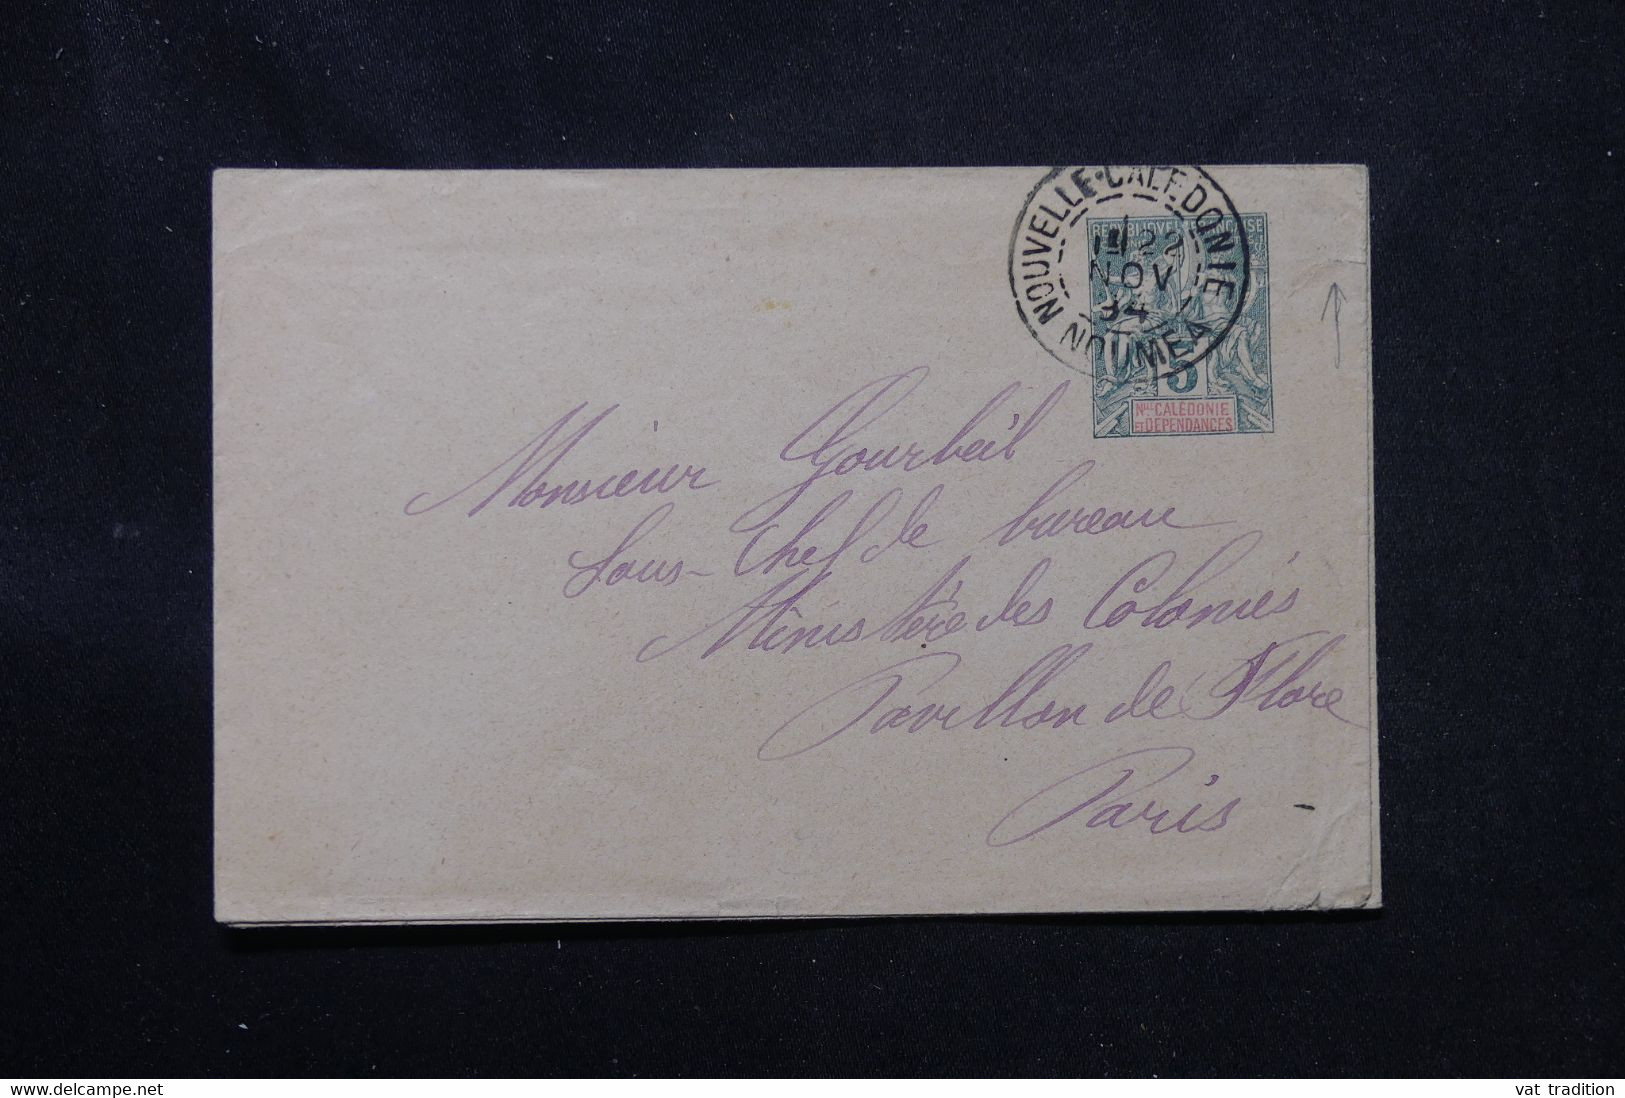 NOUVELLE-CALEDONIE
22
NOV
94
NOUMEA
5
Nlle CALEDONIE
ET DEPENDANCES
Monsieur Gourbeil
Sous-Chef de bureau
Ministère des Colonies
Pavillon de Flore
Paris
www.delcampe.net
vat tradition